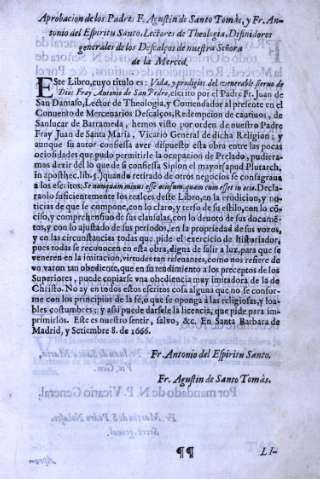 Aprobacion de los Padre. F. Agustin de Santo Tomàs, y Fr. An-
tonio del Espiritu Santo, Lectores de Theologia, Difinidores
generales de los Descalços de nuestra Señora
de la Merced.
ESte Libro, cuyo titulo es: Vida, y prodigios del venerable sieruo de
Dios Fray Antonio de San Pedro, escrito por el Padre Fr. Juan de
San Damaso, Lector de Theologia, y Comendador al presente en el
Conuento de Mercenarios Descalços, Redempcion de cautiuos, de
Sanlucar de Barrameda, hemos visto por orden de nuestro Padre
Fray Juan de Santa Maria, Vicario General de dicha Religion; y
aunque su autor confiessa aver dispuesto esta obra entre las pocas
ociosidades que pudo permitirle la ocupacion de Prelado, pudiera-
mos dezir del lo que de si confiessa Sipion el mayor (apud Plutarch.
in apopthec. lib. 5.) quando retirado de otros negocios se consagraua
a los escritos: Se nunquam minus esse ociosum, quam cum esset in ocio. Decla-
ranlo suficientemente los realces deste Libro, en la erudicion, y no-
ticias de que se compone, con lo claro, y terso de su estilo, con lo co-
ciso, y comprehensiuo de sus clausulas, con lo deuoto de sus documé-
tos, y con lo ajustado de sus periodos, en la propriedad de sus vozos,
y en las circunstancias todas que pide el exercicio de historiador,
pues todas se reconocen en esta obra, digna de salir a luz, para que se
veneren en la imitacion, virtudes tan releuantes, como nos refiere de
vn varon tan obediente, que en su rendimiento a los preceptos de los
Superiores, puede copiarse vna obediencia muy imitadora de la de
Christo. No ay en todos estos escritos cosa alguna que no se confor-
me con principios de la fè, o que se oponga à las religiosas, y loa-
bles costumbres; y assi puede darsele la licencia, que pide para im-
primirlos. Este es nuestro sentir, salvo, &c. En Santa Barbara de
Madrid, y Setiembre 8. de 1666.
Fr. Antonio del Espiritu Santo.
Fr. Agustin de Santo Tomàs.
¶¶
LI-